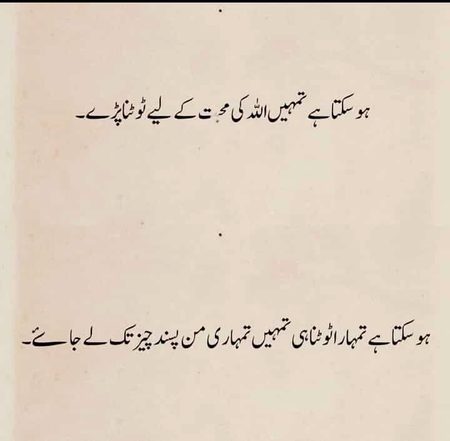 ہو سکتا ہے تمہیں اللہ کی محبت کے لیے ٹوٹنا پڑے۔
ہو سکتا ہے تمہارا ٹوٹنا ہی تمہیں تمہاری من پسند چیز تک لے جائے۔